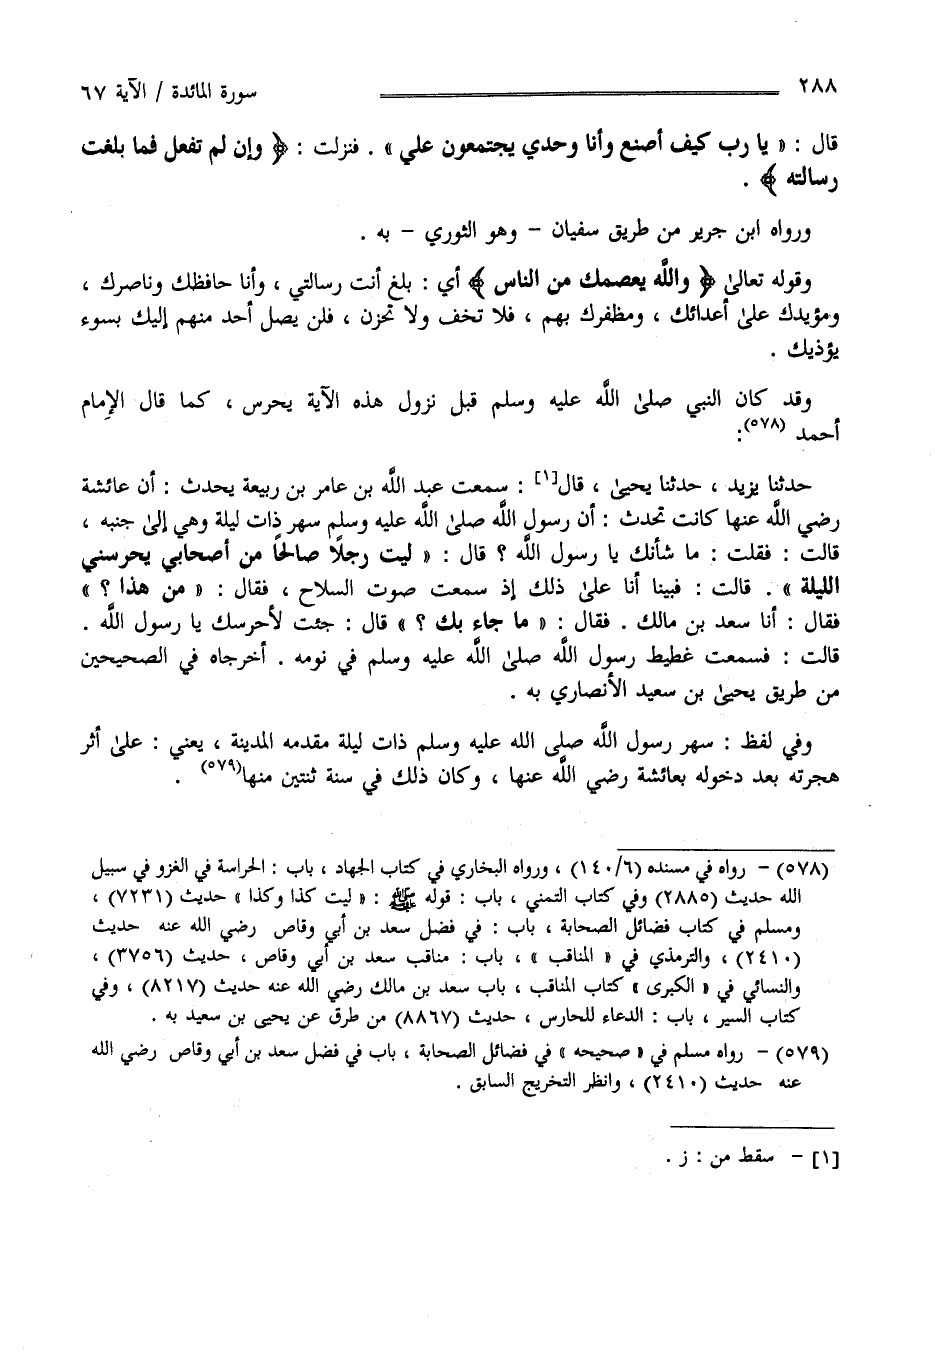 ٢٨٨ سورة المائدة / الآية ٦٧
قال : « يا رب كيف أصنع وأنا وحدي يجتمعون علي » . فنزلت : ﴿ وإن لم تفعل فما بلغت
رسالته ﴾ .
ورواه ابن جرير من طريق سفيان – وهو الثوري – به .
وقوله تعالىٰ ﴿ واللَّه يعصمك من الناس ﴾ أي : بلغ أنت رسالتي ، وأنا حافظك وناصرك ،
ومؤيدك علىٰ أعدائك ، ومظفرك بهم ، فلا تخف ولا تحزن ، فلن يصل أحد منهم إليك بسوء
يؤذيك .
وقد كان النبي صلىٰ اللَّه عليه وسلم قبل نزول هذه الآية يحرس ، كما قال الإمام
أحمد (٥٧٨):
حدثنا يزيد ، حدثنا يحيىٰ ، قال[١] : سمعت عبد اللَّه بن عامر بن ربيعة يحدث : أن عائشة
رضي اللَّه عنها كانت تحدث : أن رسول اللَّه صلىٰ اللَّه عليه وسلم سهر ذات ليلة وهي إلىٰ جنبه ،
قالت : فقلت : ما شأنك يا رسول اللَّه ؟ قال : « ليت رجلًا صالحًا من أصحابي يحرسني
الليلة » . قالت : فبينا أنا علىٰ ذلك إذ سمعت صوت السلاح ، فقال : « من هذا ؟ »
فقال : أنا سعد بن مالك . فقال : « ما جاء بك ؟ » قال : جئت لأحرسك يا رسول اللَّه .
قالت : فسمعت غطيط رسول اللَّه صلىٰ اللَّه عليه وسلم في نومه . أخرجاه في الصحيحين
من طريق يحيىٰ بن سعيد الأنصاري به .
وفي لفظ : سهر رسول اللَّه صلى الله عليه وسلم ذات ليلة مقدمه المدينة ، يعني : علىٰ أثر
هجرته بعد دخوله بعائشة رضي اللَّه عنها ، وكان ذلك في سنة ثنتين منها(٥٧٩) .
(٥٧٨) – رواه في مسنده (١٤٠/٦) ، ورواه البخاري في كتاب الجهاد ، باب : الحراسة في الغزو في سبيل
الله حديث (٢٨٨٥) وفي كتاب التمني ، باب : قوله ﷺ : « ليت كذا وكذا » حديث (٧٢٣١) ،
ومسلم في كتاب فضائل الصحابة ، باب : في فضل سعد بن أبي وقاص رضي الله عنه حديث
(٢٤١٠) ، والترمذي في « المناقب » ، باب : مناقب سعد بن أبي وقاص ، حديث (٣٧٥٦) ،
والنسائي في « الكبرى » كتاب المناقب ، باب سعد بن مالك رضي الله عنه حديث (٨٢١٧) ، وفي
كتاب السير ، باب : الدعاء للحارس ، حديث (٨٨٦٧) من طرق عن يحيى بن سعيد به .
(٥٧٩) – رواه مسلم في « صحيحه » في فضائل الصحابة ، باب في فضل سعد بن أبي وقاص رضي الله
عنه حديث (٢٤١٠) ، وانظر التخريج السابق .
[١] – سقط من : ز .